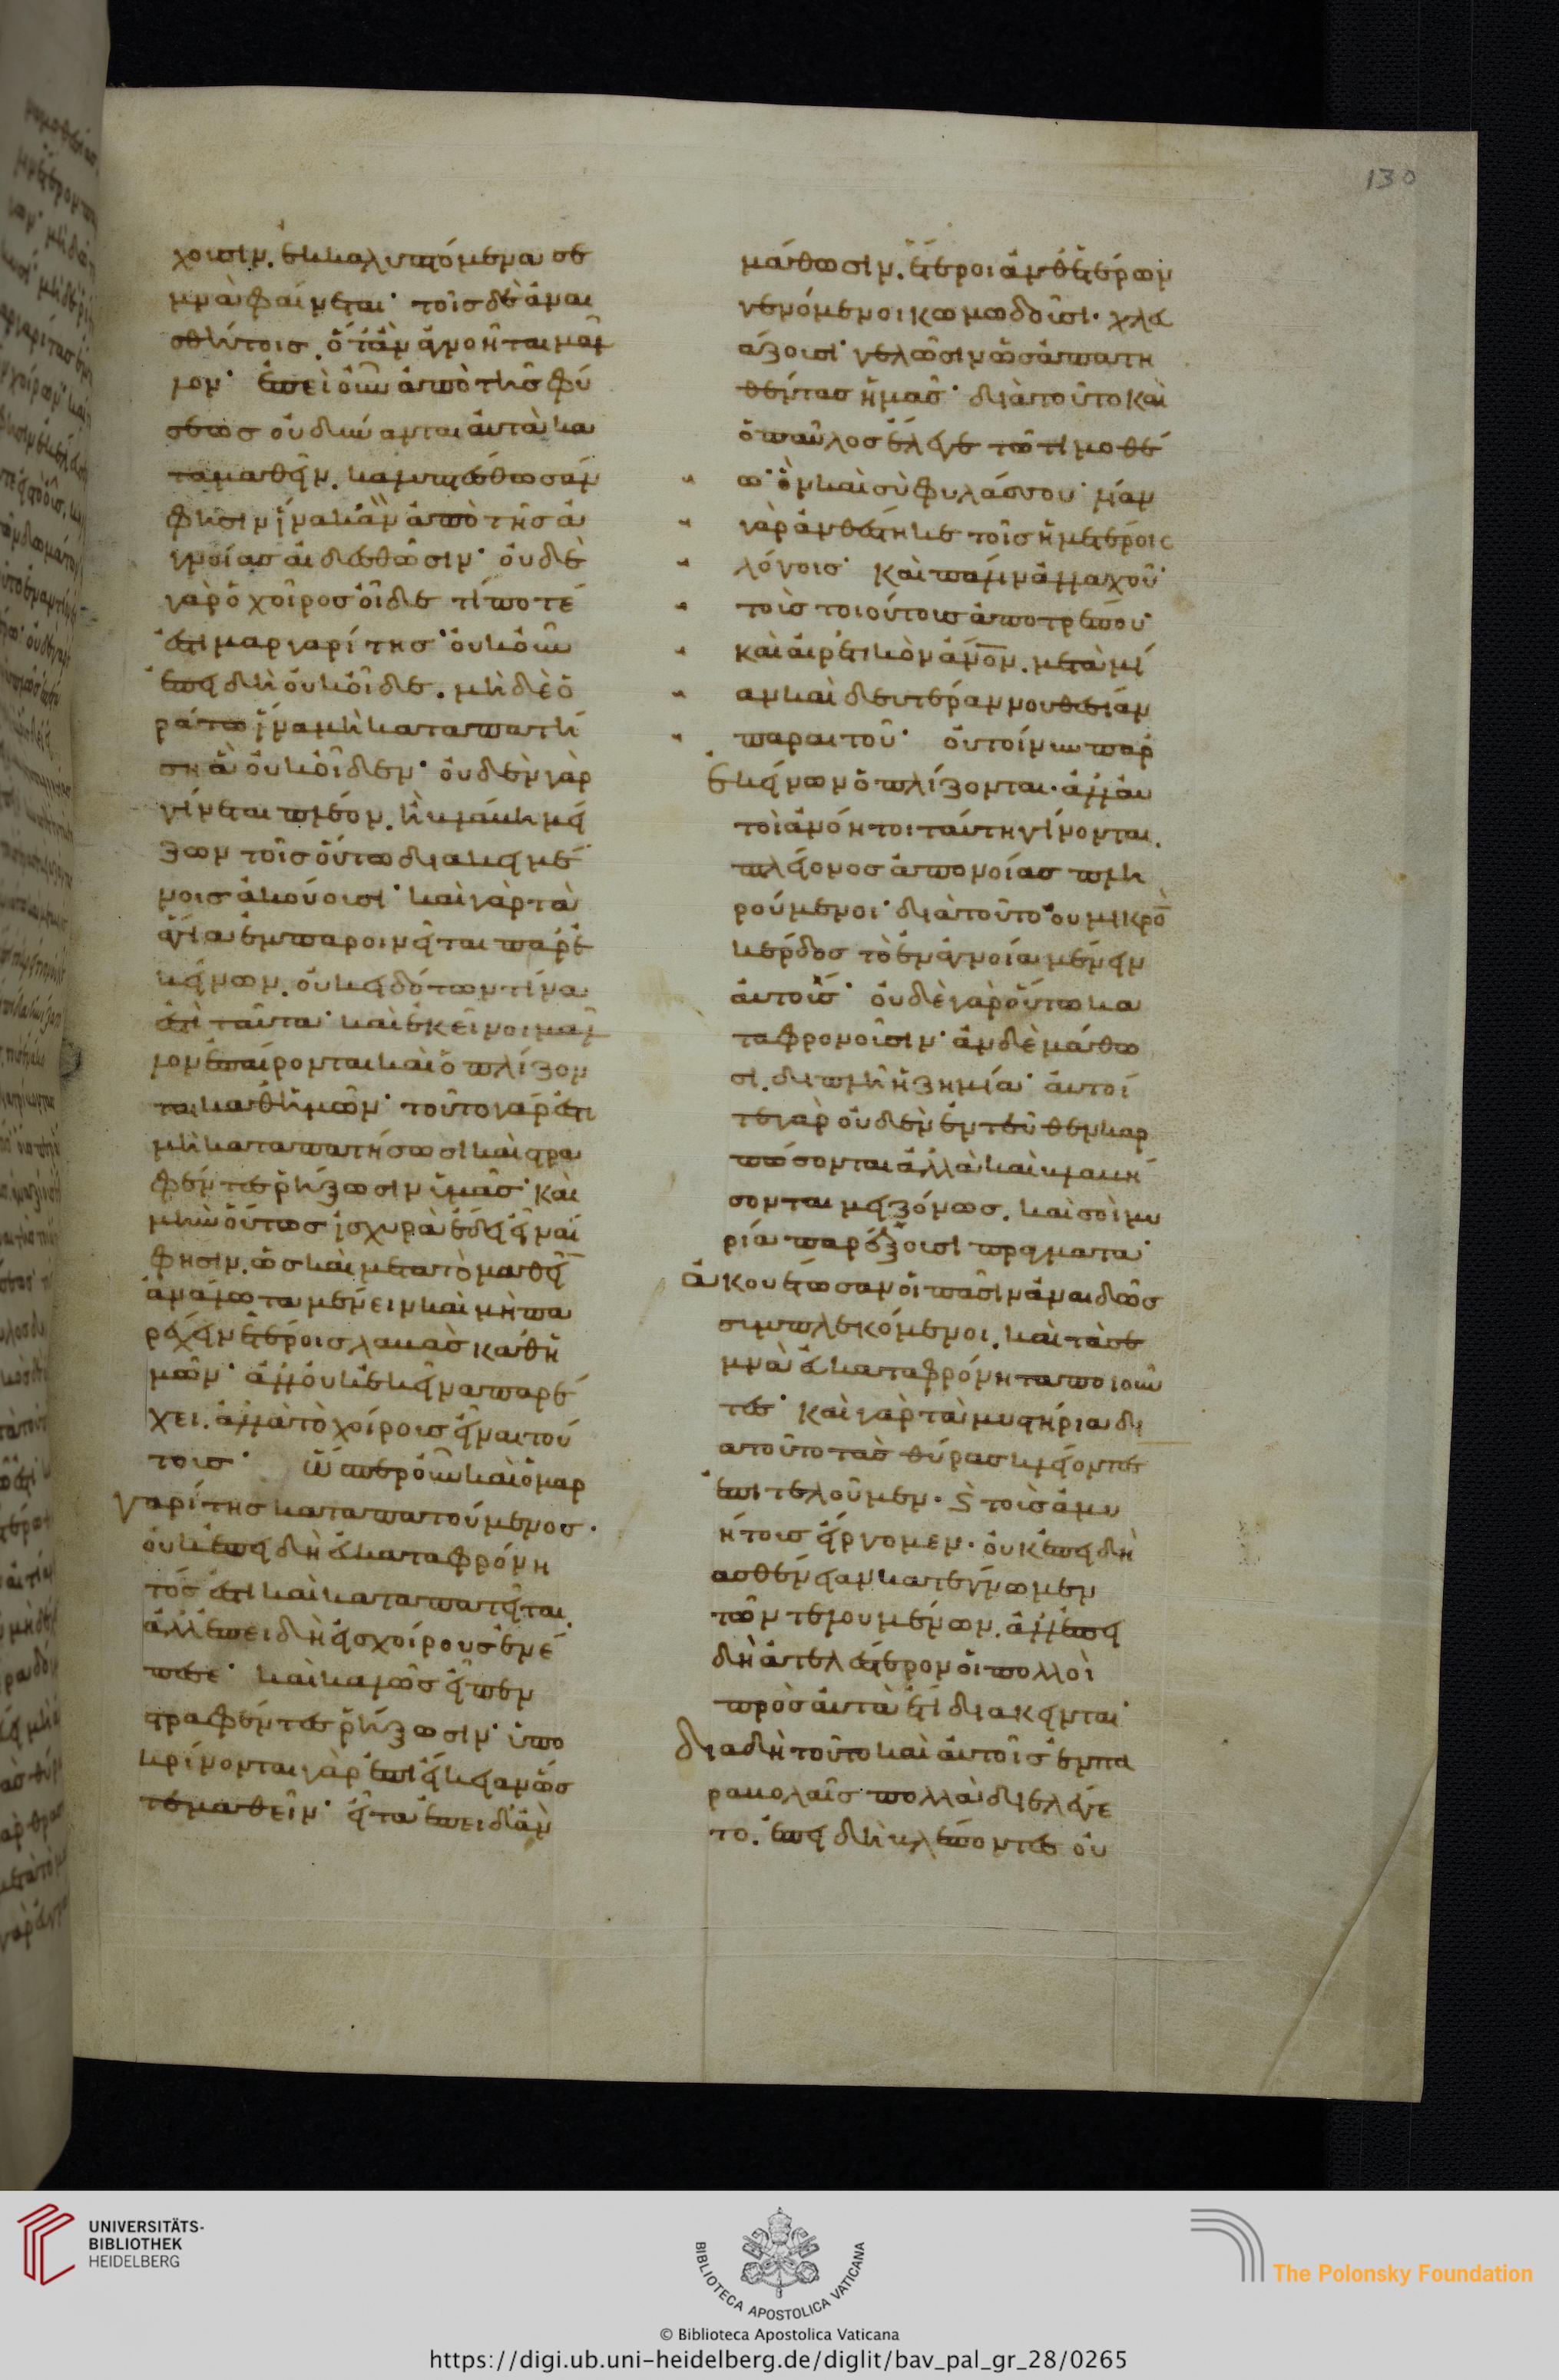 χουσιν. ἐκκαλυπτόμενα σε
μνὰ φαίνεται· τοῖς δὲ ἀναι
σθήτοις, ὅταν ἀγνοῆται μᾶλ
λον· ἐπεὶ οὖν ἀπὸ τῆς φύ
σεως οὐ δύνανται αὐτὰ κα
ταμαθεῖν. καλυπτέσθωσάν
φησιν ἵνα κἂν ἀπὸ τῆς ἀ
γνοίας αἰδεσθῶσιν· οὐδὲ
γὰρ ὁ χοῖρος οἶδε τί ποτέ
ἐστι μαργαρίτης· οὐκοῦν
ἐπειδὴ οὐκ οἶδε. μὴ δὲ ὁ
ράτω ἵνα μὴ καταπατή
σῃ ἃ οὐκ οἶδεν· οὐδὲν γὰρ
γίνεται πλέον. ἢ βλάβη μεί
ζων τοῖς οὕτω διακειμέ
νοις ἀκούουσι· καὶ γὰρ τὰ
ἅγια ἐμπαροινεῖται παρ' ἐ
κείνων. οὐκ εἰδότων τίνα
ἐστὶ ταῦτα· καὶ ἐκεῖνοι μᾶλ
λον ἐπαίρονται καὶ ὁπλίζον
ται καθ' ἡμῶν· τοῦτο γάρ ἐστι
μὴ καταπατήσωσι καὶ στρα
φέντες ῥήξωσιν ὑμᾶς· καὶ
μὴν οὕτως ἰσχυρὰ ἔδει εἶναί
φησιν. ὡς καὶ μετὰ τὸ μαθεῖ̅
ἀνάλωτα μένειν καὶ μὴ πα
ρέχειν ἑτέροις λαβὰς καθ' ἡ
μῶν· ἀλλ' οὐκ ἐκεῖνα παρέ
χει. ἀλλὰ τὸ χοίρους εἶναι τού
τους· ὥσπερ οὖν καὶ ὁ μαρ
γαρίτης καταπατούμενος.
οὐκ ἐπειδὴ εὐκαταφρόνη
τός ἐστι καὶ καταπατεῖται.
ἀλλ' ἐπειδὴ εἰς χοίρους ἐνέ
πεσε· καὶ καλῶς εἶπεν
στραφέντες ῥήξωσιν· ὑπο
κρίνονται γὰρ ἐπιείκειαν ὥς
τε μαθεῖν· εἶτα ἐπειδὰν
μάθωσιν. ἕτεροι ἀνθ' ἑτέρων
γενόμενοι κωμωδοῦσι. χλευ
άζουσι· γελῶσιν ὡς ἀπατη
θέντας ἡμᾶς· διὰ τοῦτο καὶ
ὁ παῦλος ἔλεγε τῶ τιμοθέ
ω· ὃν καὶ σὺ φυλάσσου· λίαν
γὰρ ἀνθέστηκε τοῖς ἡμετέροις
λόγοις· καὶ πάλιν ἀλλαχοῦ·
τοὺς τοιούτους ἀποτρέπου·
καὶ αἱρετικὸν ἄν̅ον. μετὰ μί
αν καὶ δευτέραν νουθεσίαν
παραιτοῦ· οὐ τοίνυν παρ'
ἐκείνων ὁπλίζονται. ἀλλ' αυ
τοὶ ἀνόητοι ταύτη γίνονται.
πλείονος ἀπονοίας πλη
ρούμενοι· διὰ τοῦτο οὐ μικρὸ̅
κέρδος τὸ ἐν ἀγνοία μένειν
αὐτούς· οὐδὲ γὰρ οὕτω κα
ταφρονοῦσιν· ἂν δὲ μάθω
σι. διπλῆ ἡ ζημία· αὐτοί
τε γὰρ οὐδὲν ἐντεῦθεν καρ
πώσονται ἀλλὰ καὶ βλαβή
σονται μειζόνως. καὶ σοὶ μυ
ρία παρέξουσι πράγματα·
ἀκουέτωσαν οἱ πᾶσιν ἀναιδῶς
συμπλεκόμενοι. καὶ τὰ σε
μνὰ εὐκαταφρόνητα ποιοῦν
τες· καὶ γὰρ τὰ μυστήρια δι
ὰ τοῦτο τὰς θύρας κλείοντες
ἐπιτελοῦμεν. ϛ τοὺς ἀμυ
ήτους εἴργομεν. οὐκ ἐπειδὴ
ἀσθένειαν κατέγνωμεν
τῶν τελουμένων. ἀλλ' ἐπει
δὴ ἀτελέστερον οἱ πολλοὶ
πρὸς αὐτὰ ἔτι διάκεινται·
διὰ δὴ τοῦτο καὶ αὐτοῖς ἐν πα
ραβολαῖς πολλὰ διελέγε
το. ἐπειδὴ βλέποντες οὐ
130
UNIVERSITÄTS-
BIBLIOTHEK
HEIDELBERG
BIBLIOTECA APOSTOLICA VATICANA
The Polonsky Foundation
© Biblioteca Apostolica Vaticana
https://digi.ub.uni-heidelberg.de/diglit/bav_pal_gr_28/0265